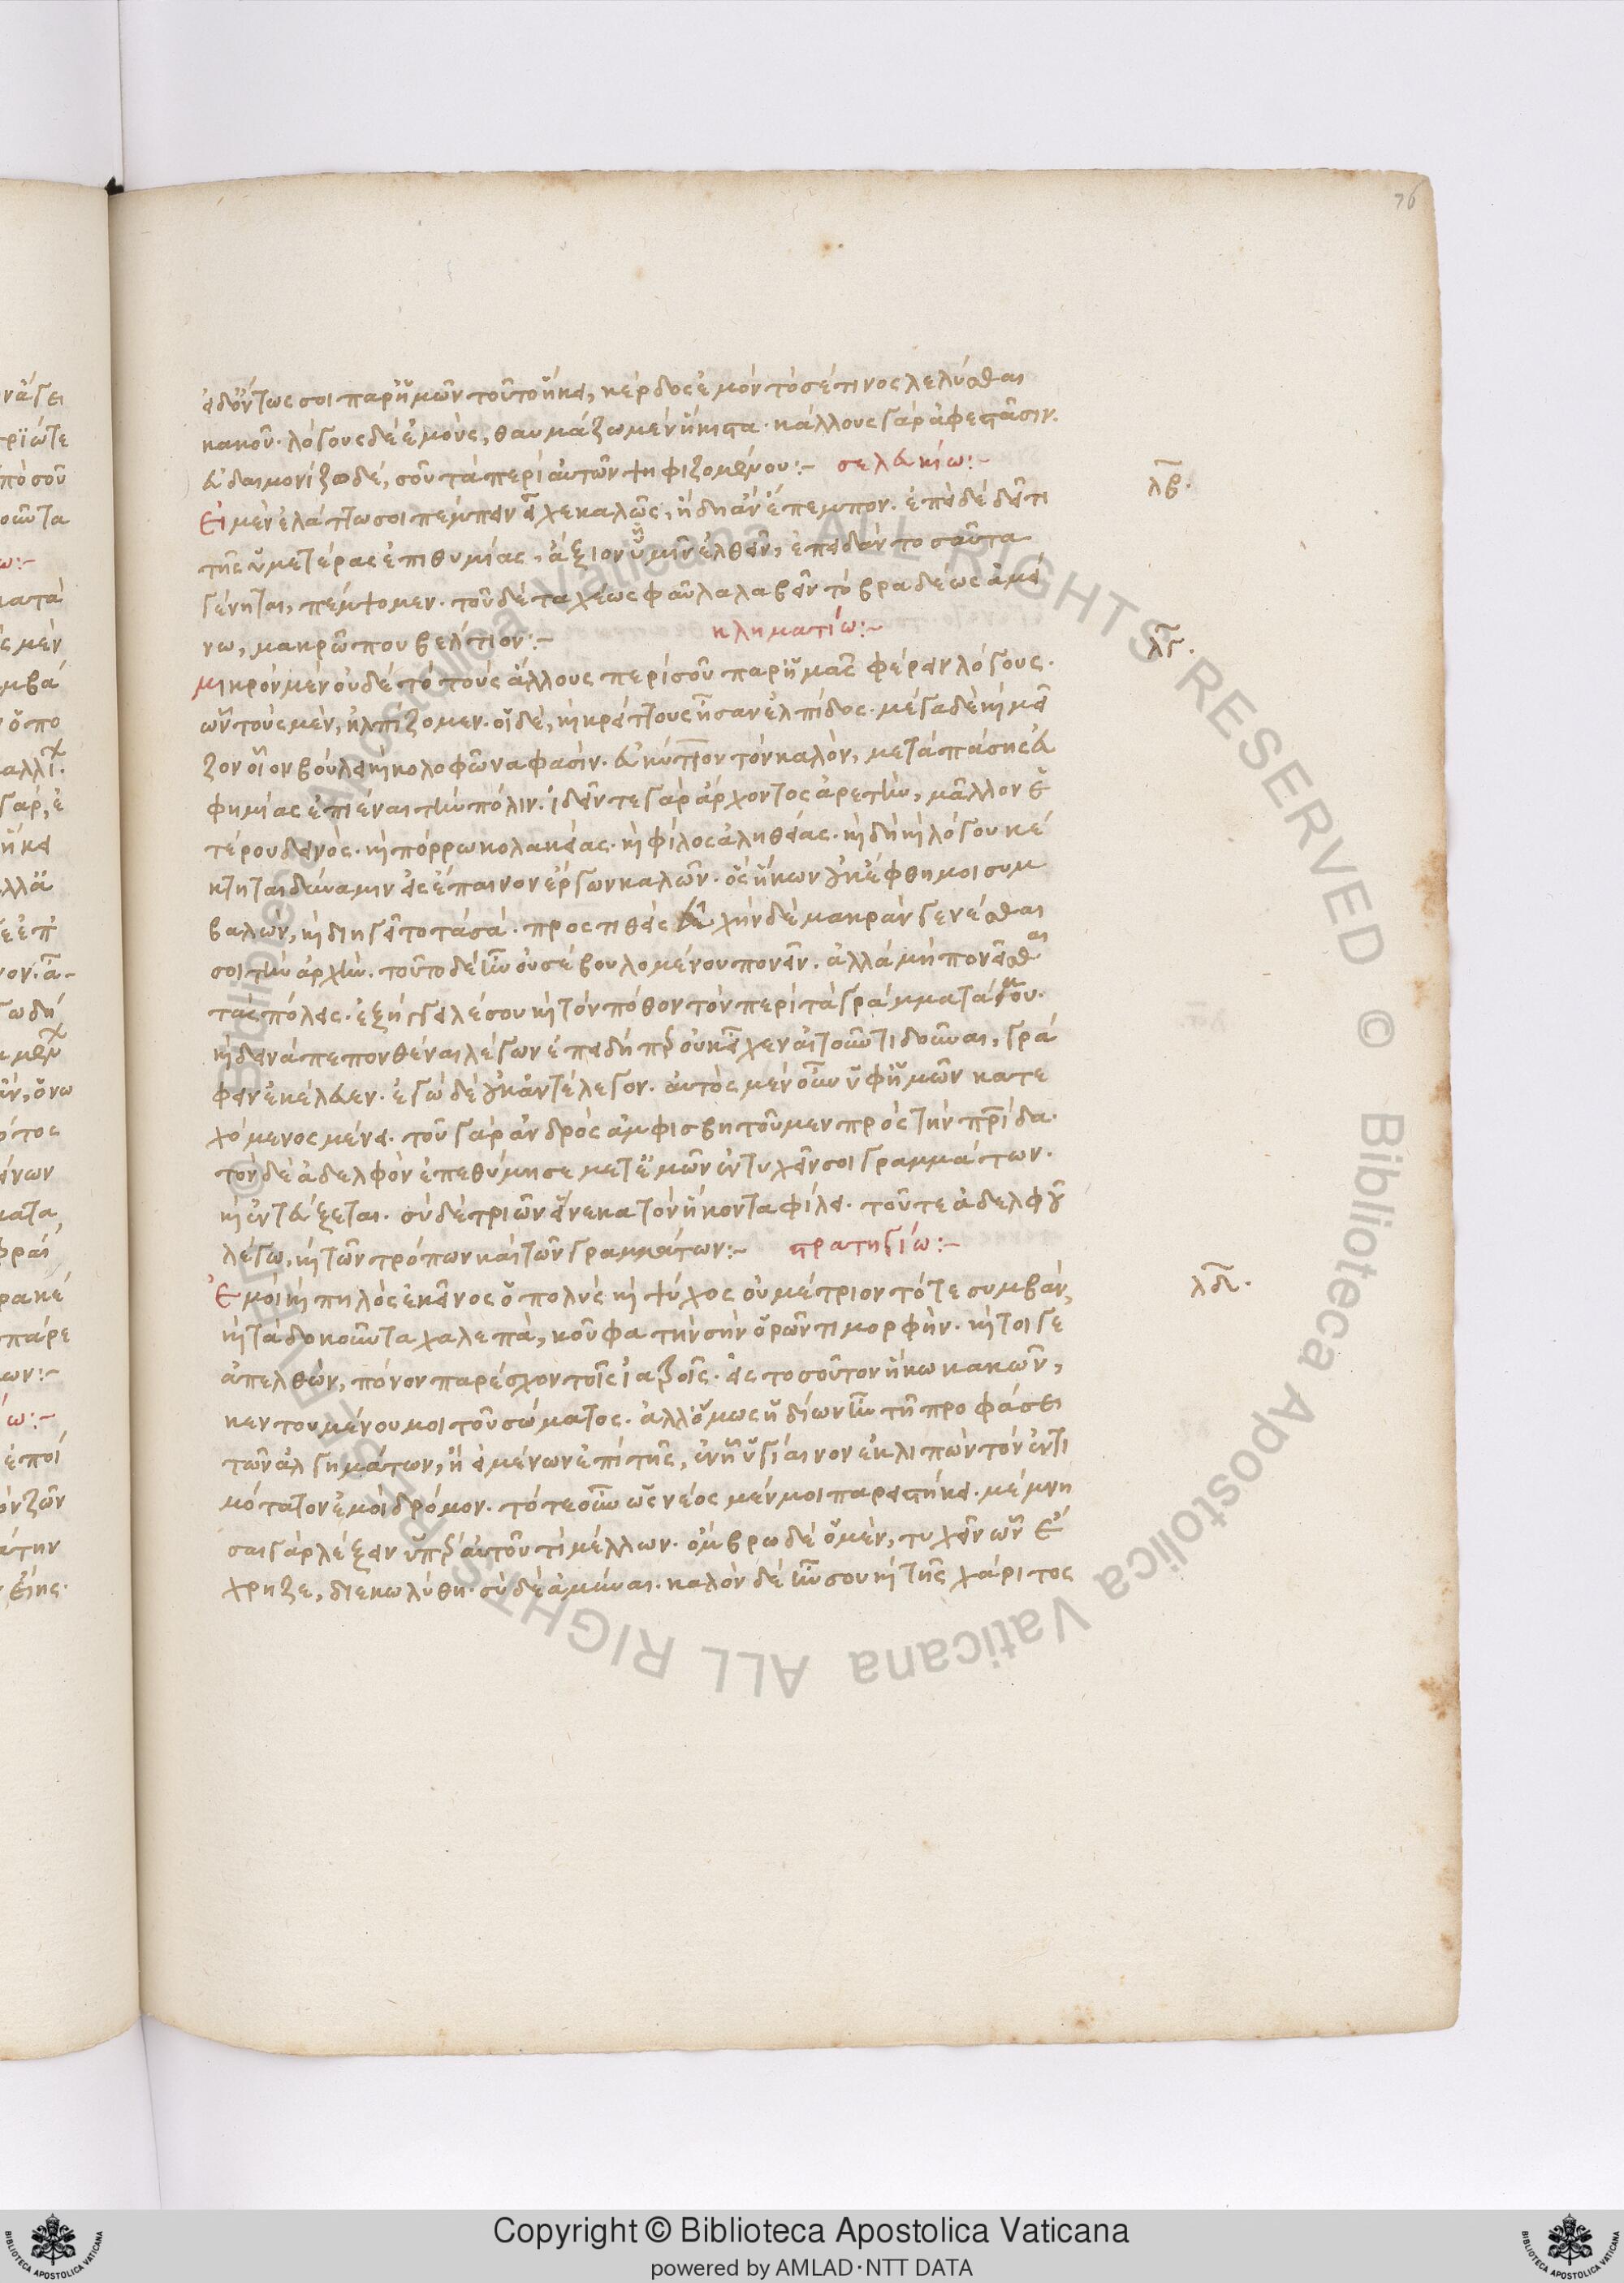 76
εἰδ' ὄντως σοι παρ' ἡμῶν τοῦτο ἥκει, κέρδος ἐμὸν τό σέ τινος λελύσθαι
κακοῦ. λόγους δὲ ἐμοὺς, θαυμάζω μὲν ἥκιστα. κάλλους γὰρ ἀφεστᾶσιν.
εὐδαιμονίζω δέ, σοῦ τὰ περὶ αὐτῶν ψηφιζομένου:- σελευκίω:-
λβ.
Εἰ μὲν ἐλάττω σοι πέμπειν εἶχε καλῶς, ἤδη ἂν ἔπεμπον. ἐπεὶ δὲ δεῖ τι
τῆς ὑμετέρας ἐπιθυμίας, ἄξιον ὑμῖν ἐλθεῖν, ἐπειδὰν τοσαῦτα
γένηται, πέμψομεν. τοῦ δὲ ταχέως φαῦλα λαβεῖν τὸ βραδέως ἀμεί
νω, μακρῶ που βέλτιον:- κληματίω:-
λγ.
μικρὸν μὲν οὐδὲ τὸ τοὺς ἄλλους περὶ σοῦ παρ' ἡμᾶς φέρειν λόγους.
ὧν τοὺς μὲν, ἠλπίζομεν. οἱ δὲ, κὶ κρείττους ἦσαν ἐλπίδος. μέγα δὲ κὶ μεῖ
ζον οἷον βούλει κὶ κολοφῶνα φασίν. εὐκύπτιον τὸν καλὸν, μετὰ πάσης εὐ
φημίας ἐπιέναι τὴν πόλιν. ἰδεῖν τε γὰρ ἄρχοντος ἀρετὴν, μᾶλλον ἑ
τέρου δεινὸς. κὶ πόρρω κολακείας. κὶ φίλος ἀληθείας. κὶ δὴ κὶ λόγου κέ
κτηται δύναμιν εἰς ἔπαινον ἔργων καλῶν. ὃς ἥκων οὐκ ἔφθη μοι συμ
βαλὼν, κὶ διηγεῖτο τὰ σά. προστιθεὶς εὐχὴν δὲ μακρὰν γενέσθαι
σοι τὴν ἀρχήν. τοῦτο δὲ ἦν οὐ σὲ βουλομένου πονεῖν. ἀλλὰ μὴ πονεῖσθαι
τὰς πόλεις. ἐξήγγειλέ σου κὶ τὸν πόθον τὸν περὶ τὰ γράμματά μου.
κὶ δεινὰ πεπονθέναι λέγων ἐπειδὴ πρ οὐκ εἶχεν αἰτοῦντι δοῦναι, γρά
φειν ἐκέλευεν. ἐγὼ δὲ οὐκ ἀντέλεγον. αὐτὸς μὲν οὖν ὑφ' ἡμῶν κατε
χόμενος μένει. τοῦ γὰρ ἀνδρὸς ἀμφισβητοῦμεν πρὸς τὴν πρίδα.
τὸν δὲ ἀδελφὸν ἐπεθύμησε μεθ' ἡμῶν ἐντυχεῖν σοι γραμμάτων.
κὶ ἐντεύξεται. σὺ δὲ τριῶν εἵνεκα τὸν ἥκοντα φίλει. τοῦ τε ἀδελφοῦ
λέγω, κὶ τῶν τρόπων καὶ τῶν γραμμάτων:- στρατηγίω:-
λδ.
Ἐμοὶ κὶ πηλὸς ἐκεῖνος ὁ πολὺς κὶ ψύχος οὐ μέτριον τότε συμβὰν,
κὶ τὰ δοκοῦντα χαλεπὰ, κοῦφα τὴν σὴν ὁρῶντι μορφὴν. κὶ τοί γε
ἀπελθὼν, πόνον παρέσχον τοῖς ἰατροῖς. εἰς τοσοῦτον ἥκω κακῶν,
κεντουμένου μοι τοῦ σώματος. ἀλλ' ὅμως ἡδίων ἦν τῇ προφάσει
τῶν ἀλγημάτων, ἢ εἰ μένων ἐπὶ τῆς, ἐν ᾗ ὑγίαινον ἐκλιπὼν τὸν ἐντι
μότατον ἐμοὶ δρόμον. τότε οὖν ὡς νέος μέν μοι παρειστήκει. μέμνη
σαι γὰρ λέξειν ὑπὲρ αὐτοῦ τὶ μέλλων. ὄμβρω δὲ ὁ μὲν, τυχεῖν ὧν ἔ
χρηζε, διεκωλύθη. σὺ δὲ ἀμύναι. καλὸν δὲ ἦν σου κὶ τῆς χάριτος
Biblioteca Apostolica Vaticana ALL RIGHTS RESERVED ©
Copyright © Biblioteca Apostolica Vaticana
powered by AMLAD·NTT DATA
BIBLIOTECA APOSTOLICA VATICANA